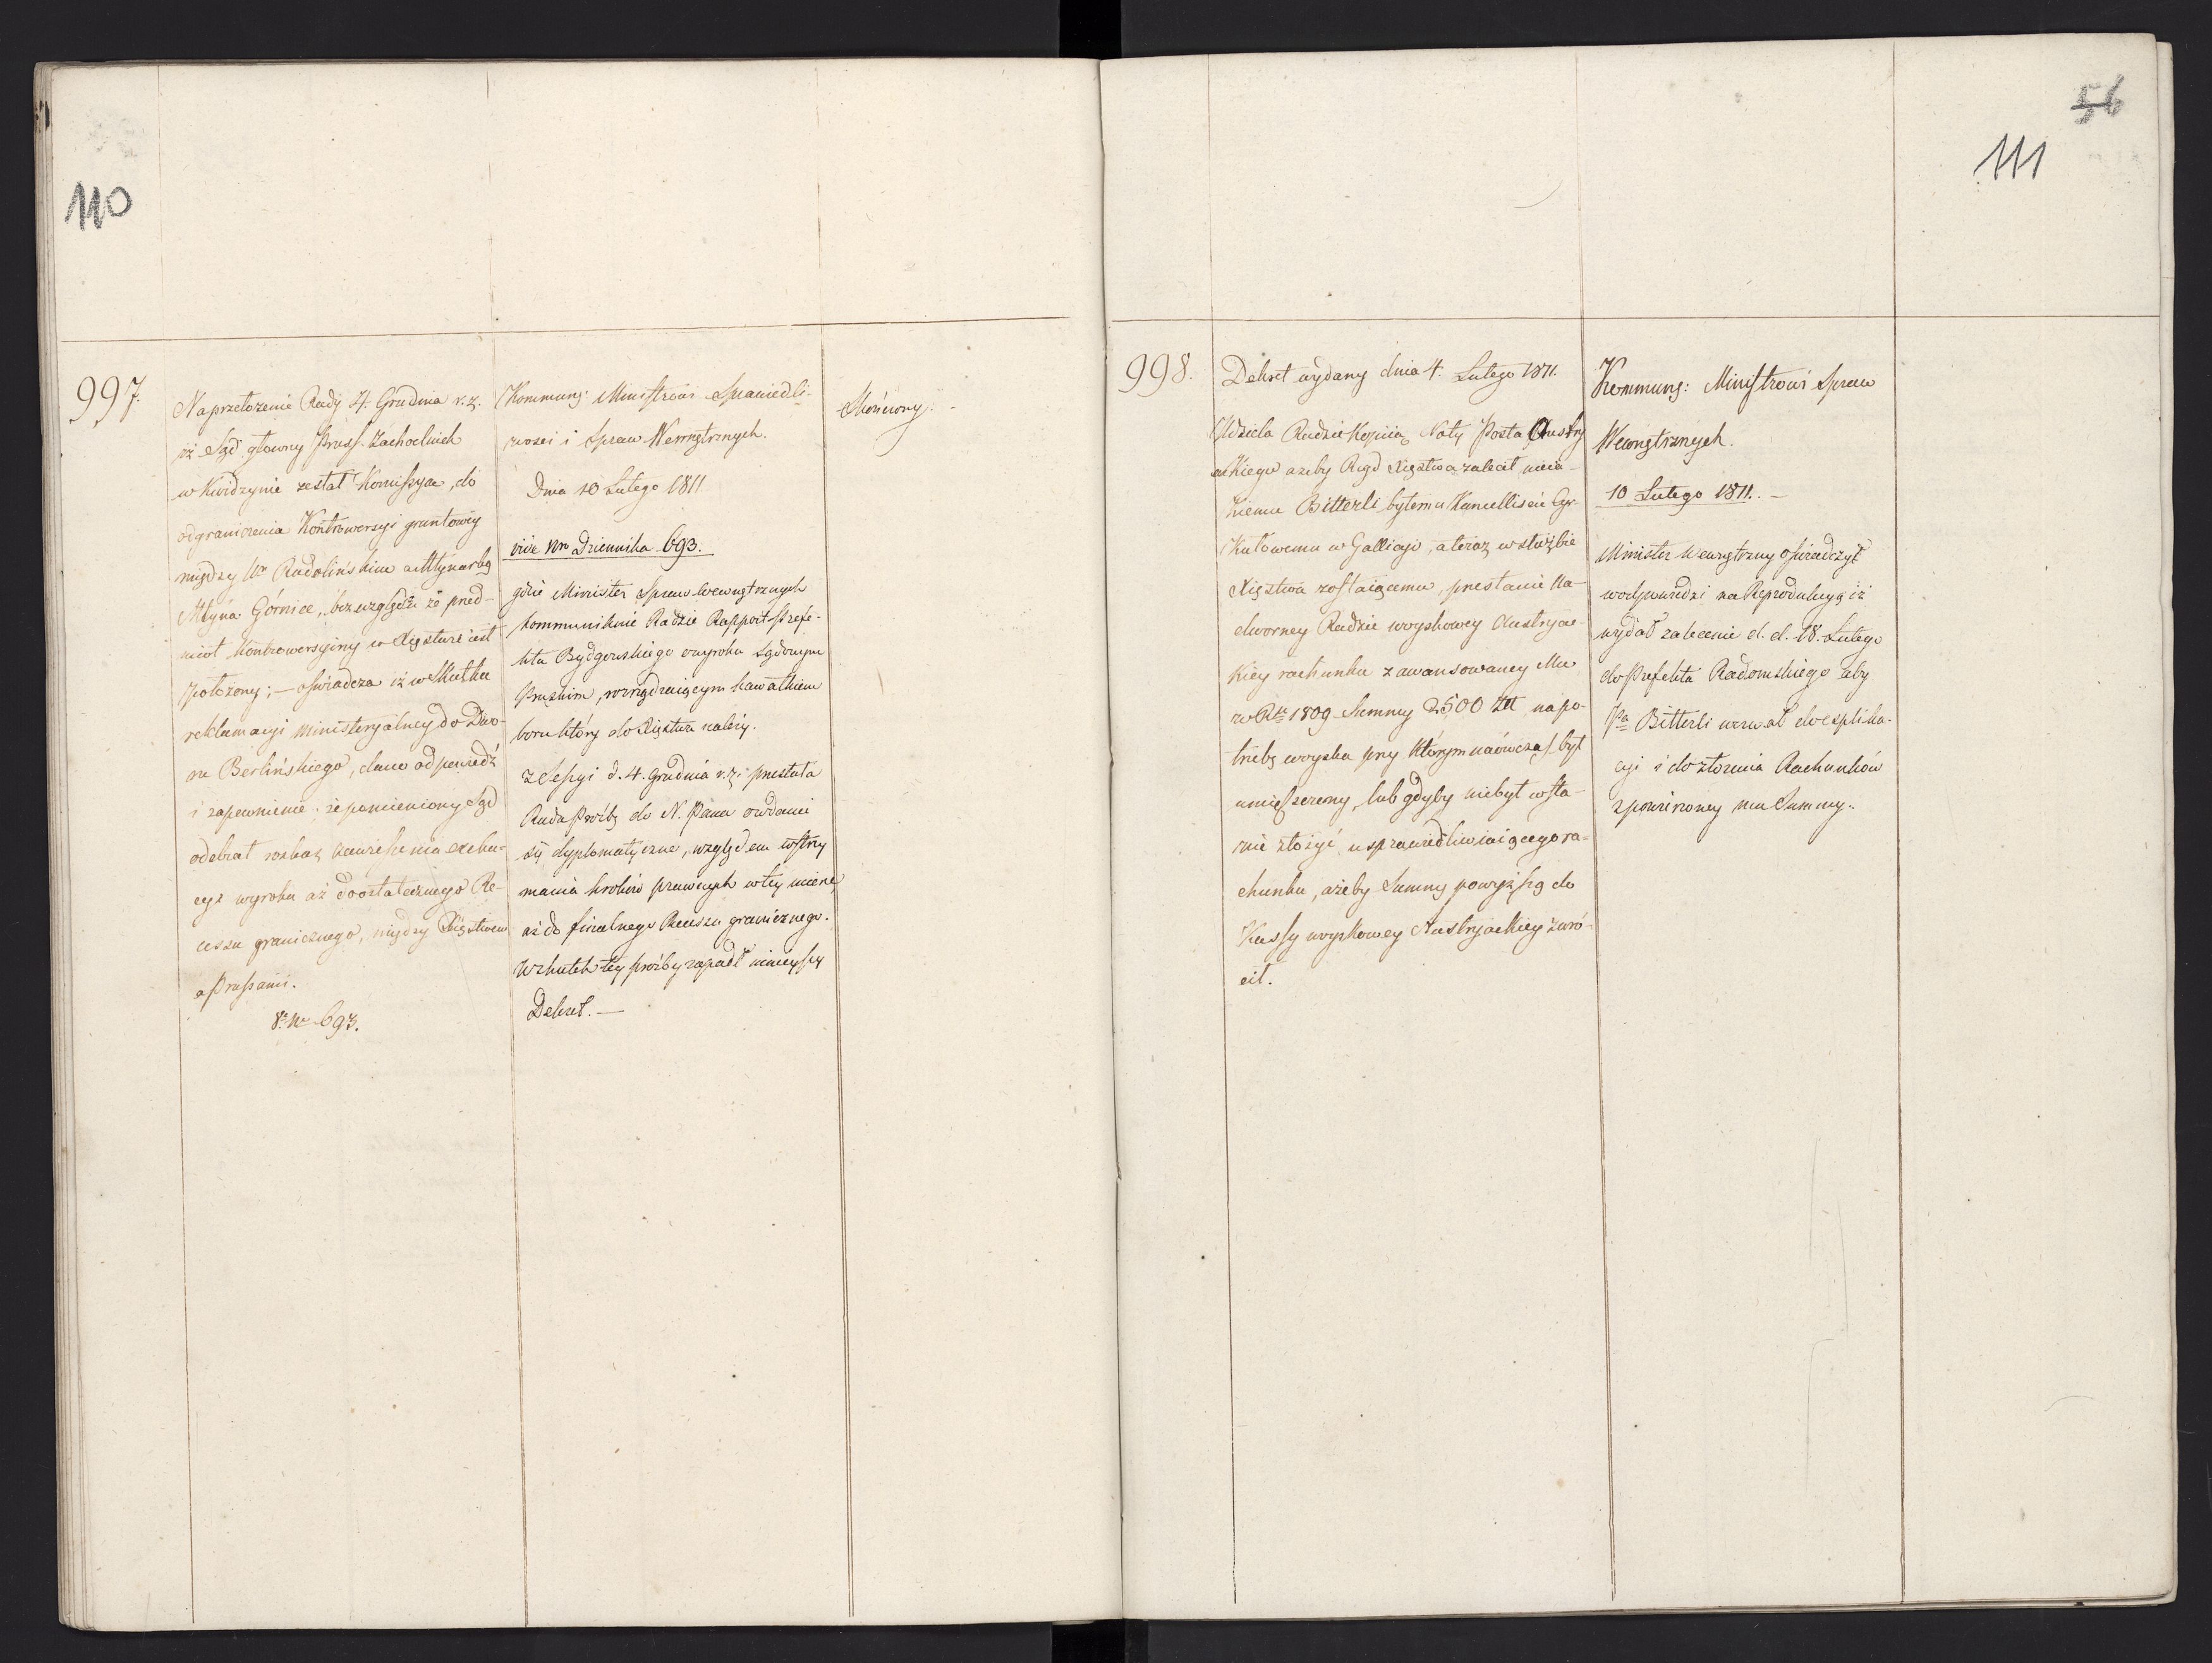 110
997.
Na przełożenie Rady 4. Grudnia r. z.
iż Sąd główny Pruss. Zachodnich
w Kwidzynie zesłał Komissyą, do
odgraniczenia Kontrowersyi gruntowey
między Ur Radolińskim a Młynarką
Młyna Górnice, bez względu że przed-
miot Kontrowersyiny w Xięstwie iest
położony; — oświadcza iż w skutku
reklamacyi Ministeryalney do Dwo-
ru Berlińskiego, dano odpowiedź
i zapewnienie, że pomieniony Sąd
odebrał rozkaz zawieszenia exeku-
cyi wyroku aż do ostatecznego Re-
cessu granicznego, między Xięstwem
a Prussami.
Nr 693.
Kommunę: Ministrowi Sprawiedli-
wości i Spraw Wewnętrznych.
Dnia 10 Lutego 1811
vide Nro Dziennika 693.
gdzie Minister Spraw Wewnętrznych
kommunikuie Radzie Rapport Prefe-
kta Bydgoskiego o wyroku Sądowym
Pruskim, rozrządzaiącym kawałkiem
boru który do Xięstwa należy.
z Sessyi d. 4. Grudnia r. z. przesłała
Rada Proźbę do N. Pana o wdanie
się dyplomatyczne, względem wstrzy
mania kroków prawnych w tey mierze
aż do finalnego Recessu granicznego.
W skutek tey proźby zapadł ninieyszy
Dekret. —
Skończony. -
56
111
998.
Dekret wydany dnia 4. Lutego 1811.
Udziela Radzie Kopiią Noty Posła Austry
ackiego ażeby Rząd Xięstwa zalecił nieia-
kiemu Bitterli byłemu Kancelliście Cyr-
kułowemu w Gallicyi, a teraz w służbie
Xięstwa zostaiącemu, przesłanie Na-
dworney Radzie woyskowey Austryac-
kiey rachunku z awansowaney Mu
w Rku 1809 Summy 2500 Złł na po-
trzebę woyska przy którym naówczas był
umieszczony, lub gdyby niebył w sta-
nie złożyć usprawiedliwiaiącego ra-
chunku, ażeby Summę powyższą do
Kassy woyskowey Austryackiey zwró-
cił.
Kommunę: Ministrowi Spraw
Wewnętrznych.
10 Lutego 1811. —
Minister Wewnętrzny oświadczył
w odpowiedzi na Reprodukcyą iż
wydał zalecenie d. d. 18. Lutego
do Prefekta Radomskiego aby
Pa Bitterli wezwał do explika-
cyi i do złożenia Rachunków
z powierzoney mu Summy.